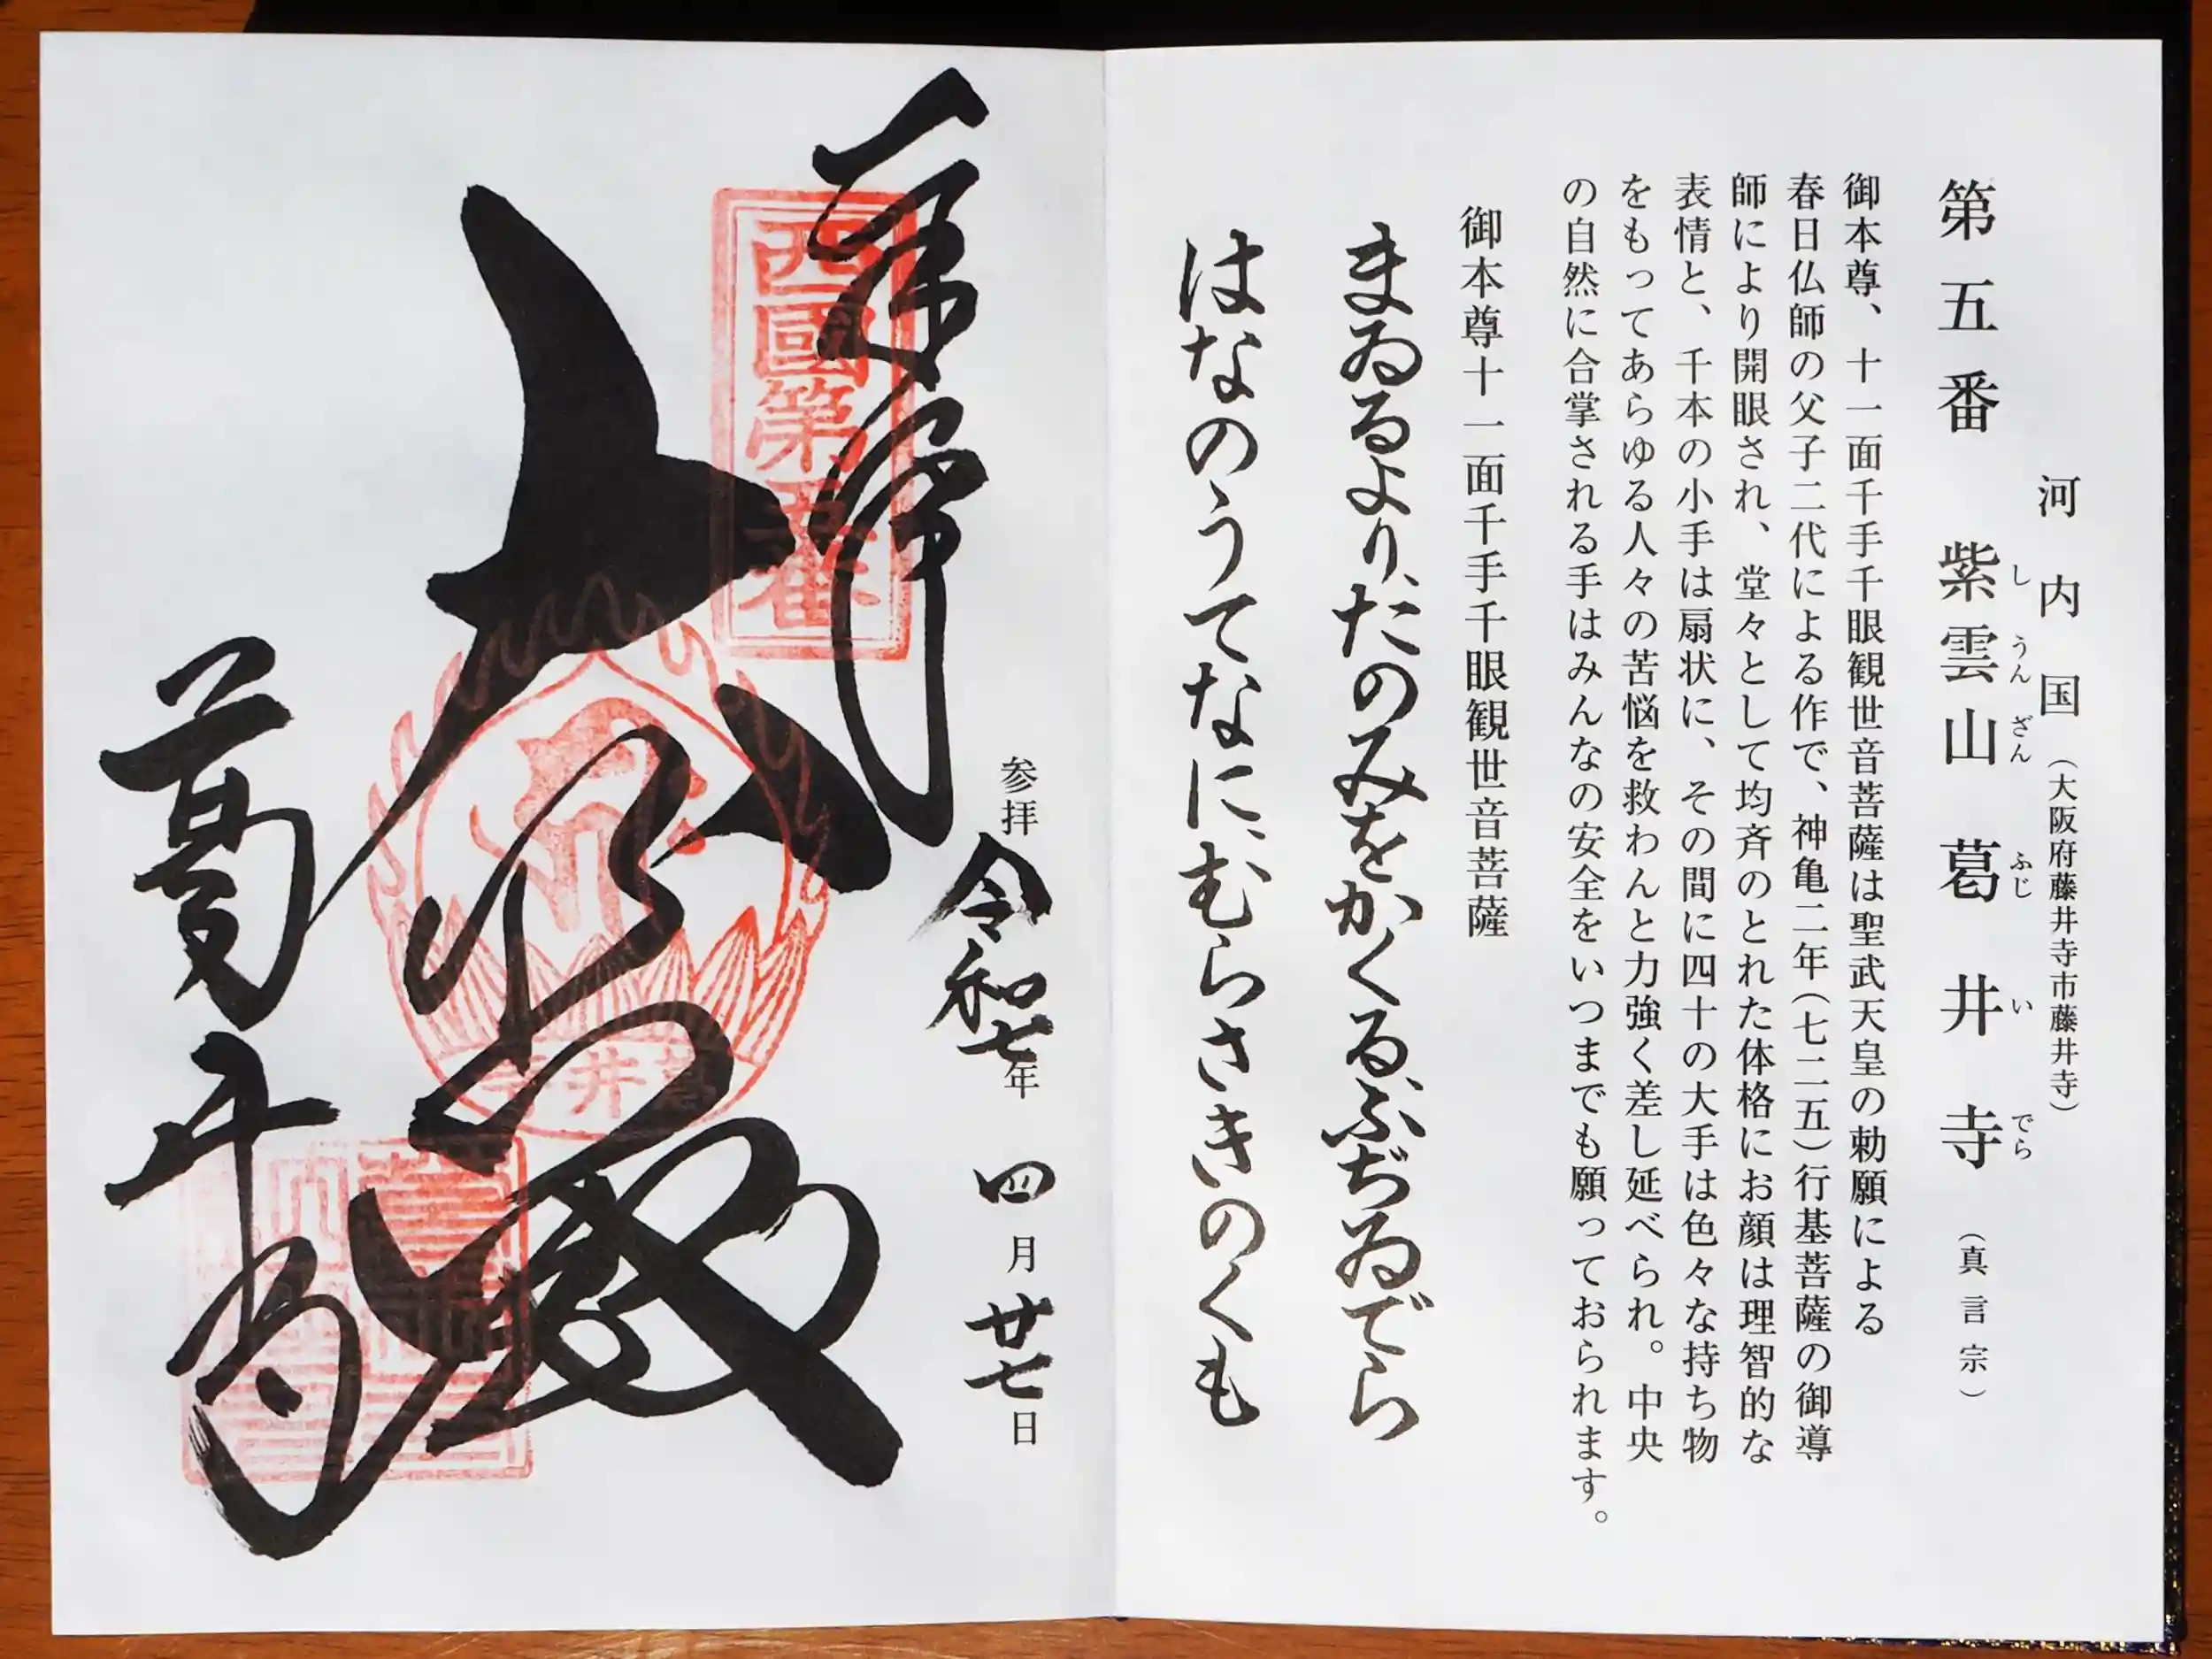 河内国（大阪府藤井寺市藤井寺）
第五番 紫雲山 葛井寺（真言宗）
しうんざん ふじいでら
御本尊、十一面千手千眼観世音菩薩は聖武天皇の勅願による
春日仏師の父子二代による作で、神亀二年（七二五）行基菩薩の御導
師により開眼され、堂々として均斉のとれた体格にお顔は理智的な
表情と、千本の小手は扇状に、その間に四十の大手は色々な持ち物
をもってあらゆる人々の苦悩を救わんと力強く差し延べられ。中央
の自然に合掌される手はみんなの安全をいつまでも願っておられます。
御本尊十一面千手千眼観世音菩薩
まゐるより、たのみをかくる、ふぢゐでら
はなのうてなに、むらさきのくも
参拝 令和七年 四月廿七日
奉拝
西國第五番
大悲殿
葛井寺